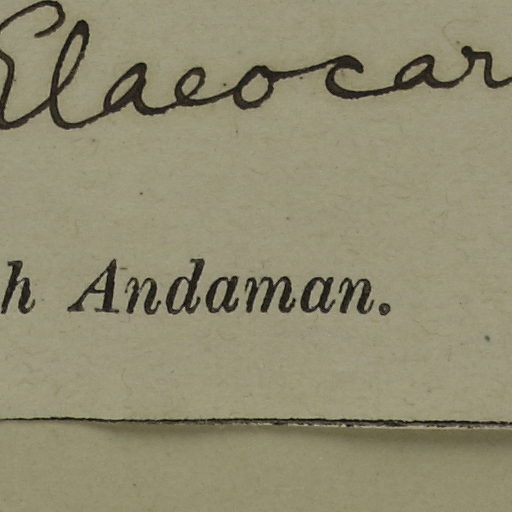 Elaeocar
h Andaman.